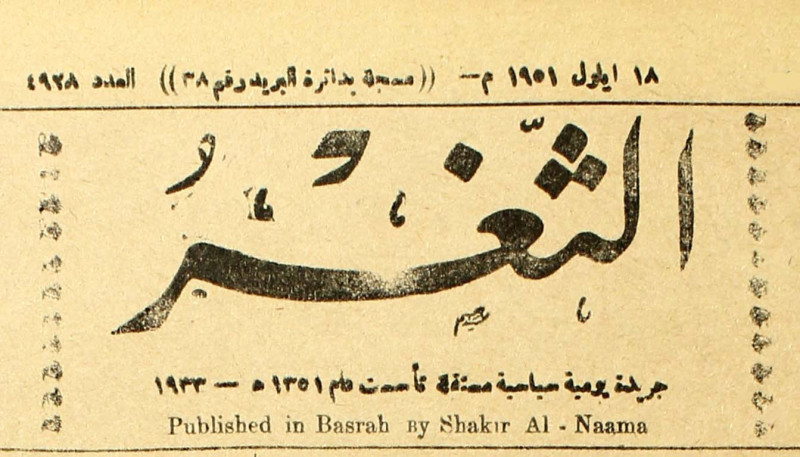 ١٨ ايلول ١٩٥١ م — ((مسجلة بدائرة البريد رقم ٣٨)) العدد ٤٩٢٨
الثَّغْرُ
جريدة يومية سياسية مستقلة تأسست عام ١٣٥١ ه — ١٩٣٣
Published in Basrah By Shakir Al - Naama